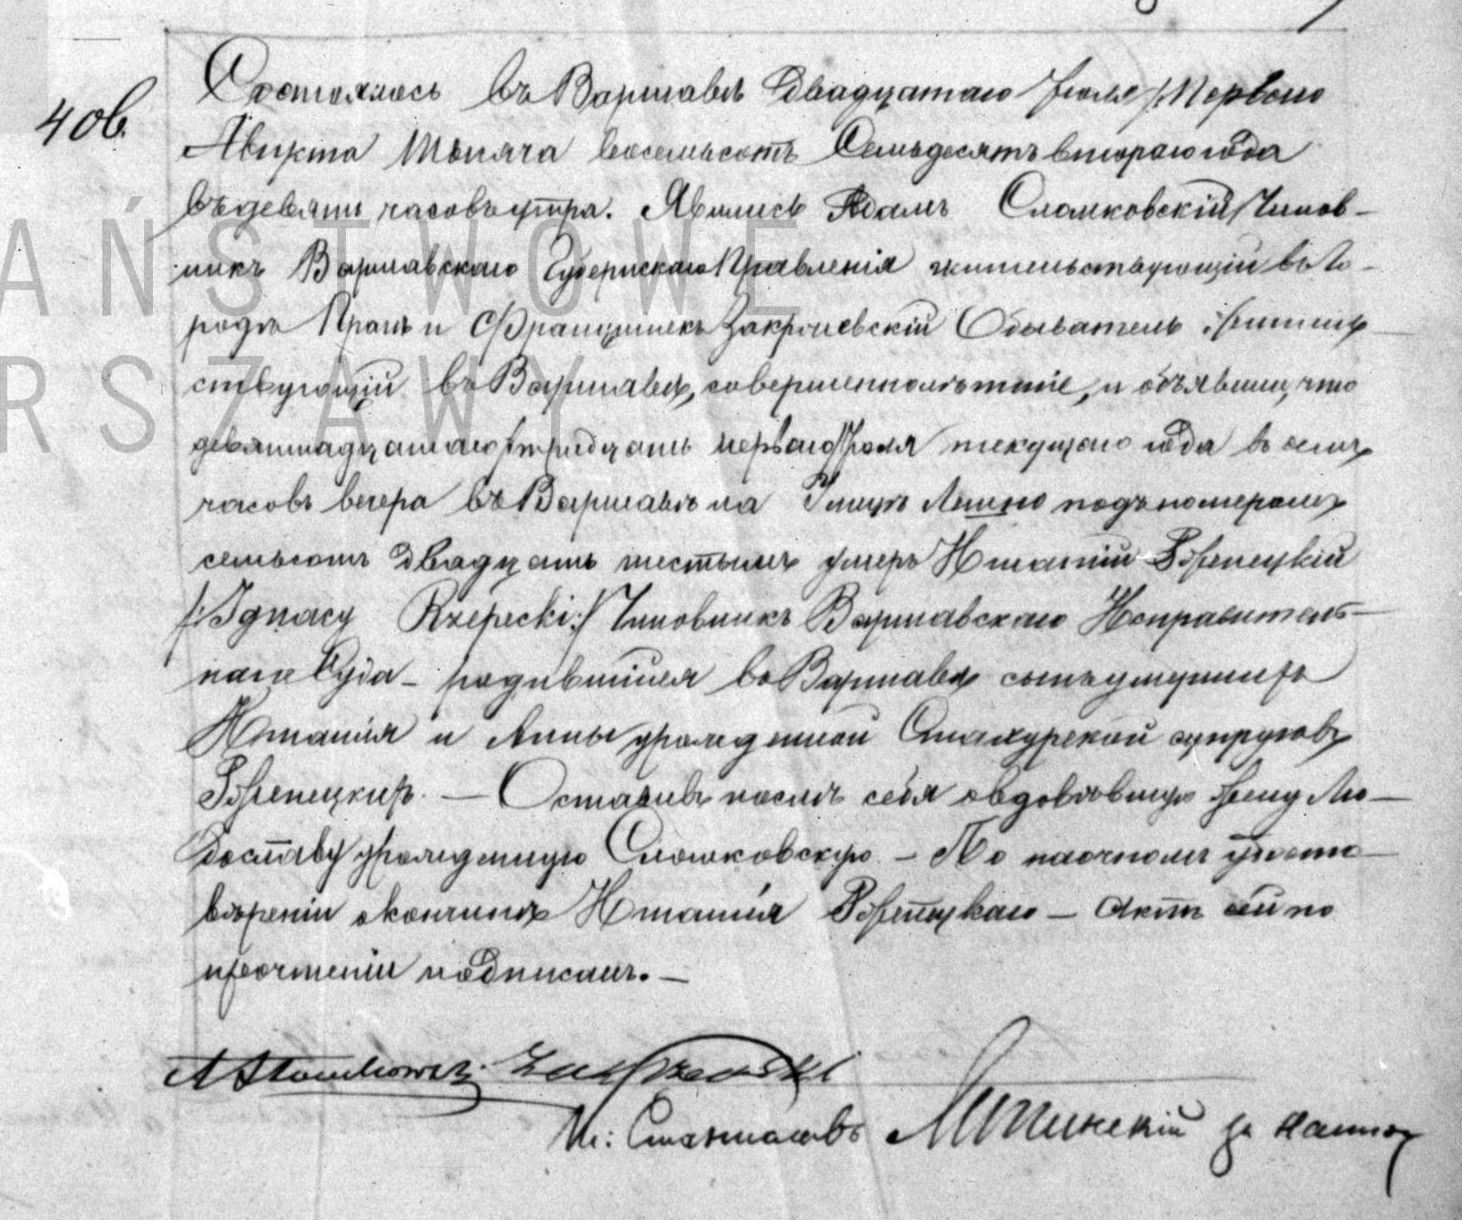 406.
Состоялось въ Варшавѣ двадцатаго Іюля /:Перваго
Августа тысяча восемьсотъ семьдесятъ втораго года
въ девять часовъ утра. Явились Адамъ Сломковскій Чинов-
никъ Варшавскаго Губернскаго Правленія жительствующій въ Го-
родѣ и Францишекъ Закржевскій Обыватель житель-
ствующій въ Варшавѣ, совершеннолѣтніе, и объявили, что
девятнадцатаго /тридцать перваго/ Іюля текущаго года въ семь
часовъ вечера въ Варшавѣ на Улицѣ Лешно подъ номеромъ
семьсотъ двадцать шестымъ умеръ Игнатій Ржепецкій
/:Ignacy Rzepecki:/ Чиновникъ Варшавскаго Исправитель-
наго Суда – родившійся въ Варшавѣ сынъ умершихъ
Игнатія и Анны урожденной супруговъ
Ржепецкихъ. — Оставивъ послѣ себя овдовѣвшую жену Лю-
бославу урожденную Сломковскую – По наочномъ удосто-
вѣреніи о кончинѣ Игнатія Ржепецкаго – Актъ сей по
прочтеніи подписанъ. –
A Słomkowski Zakrzewski
АŃSTWOWE
RSZAWY